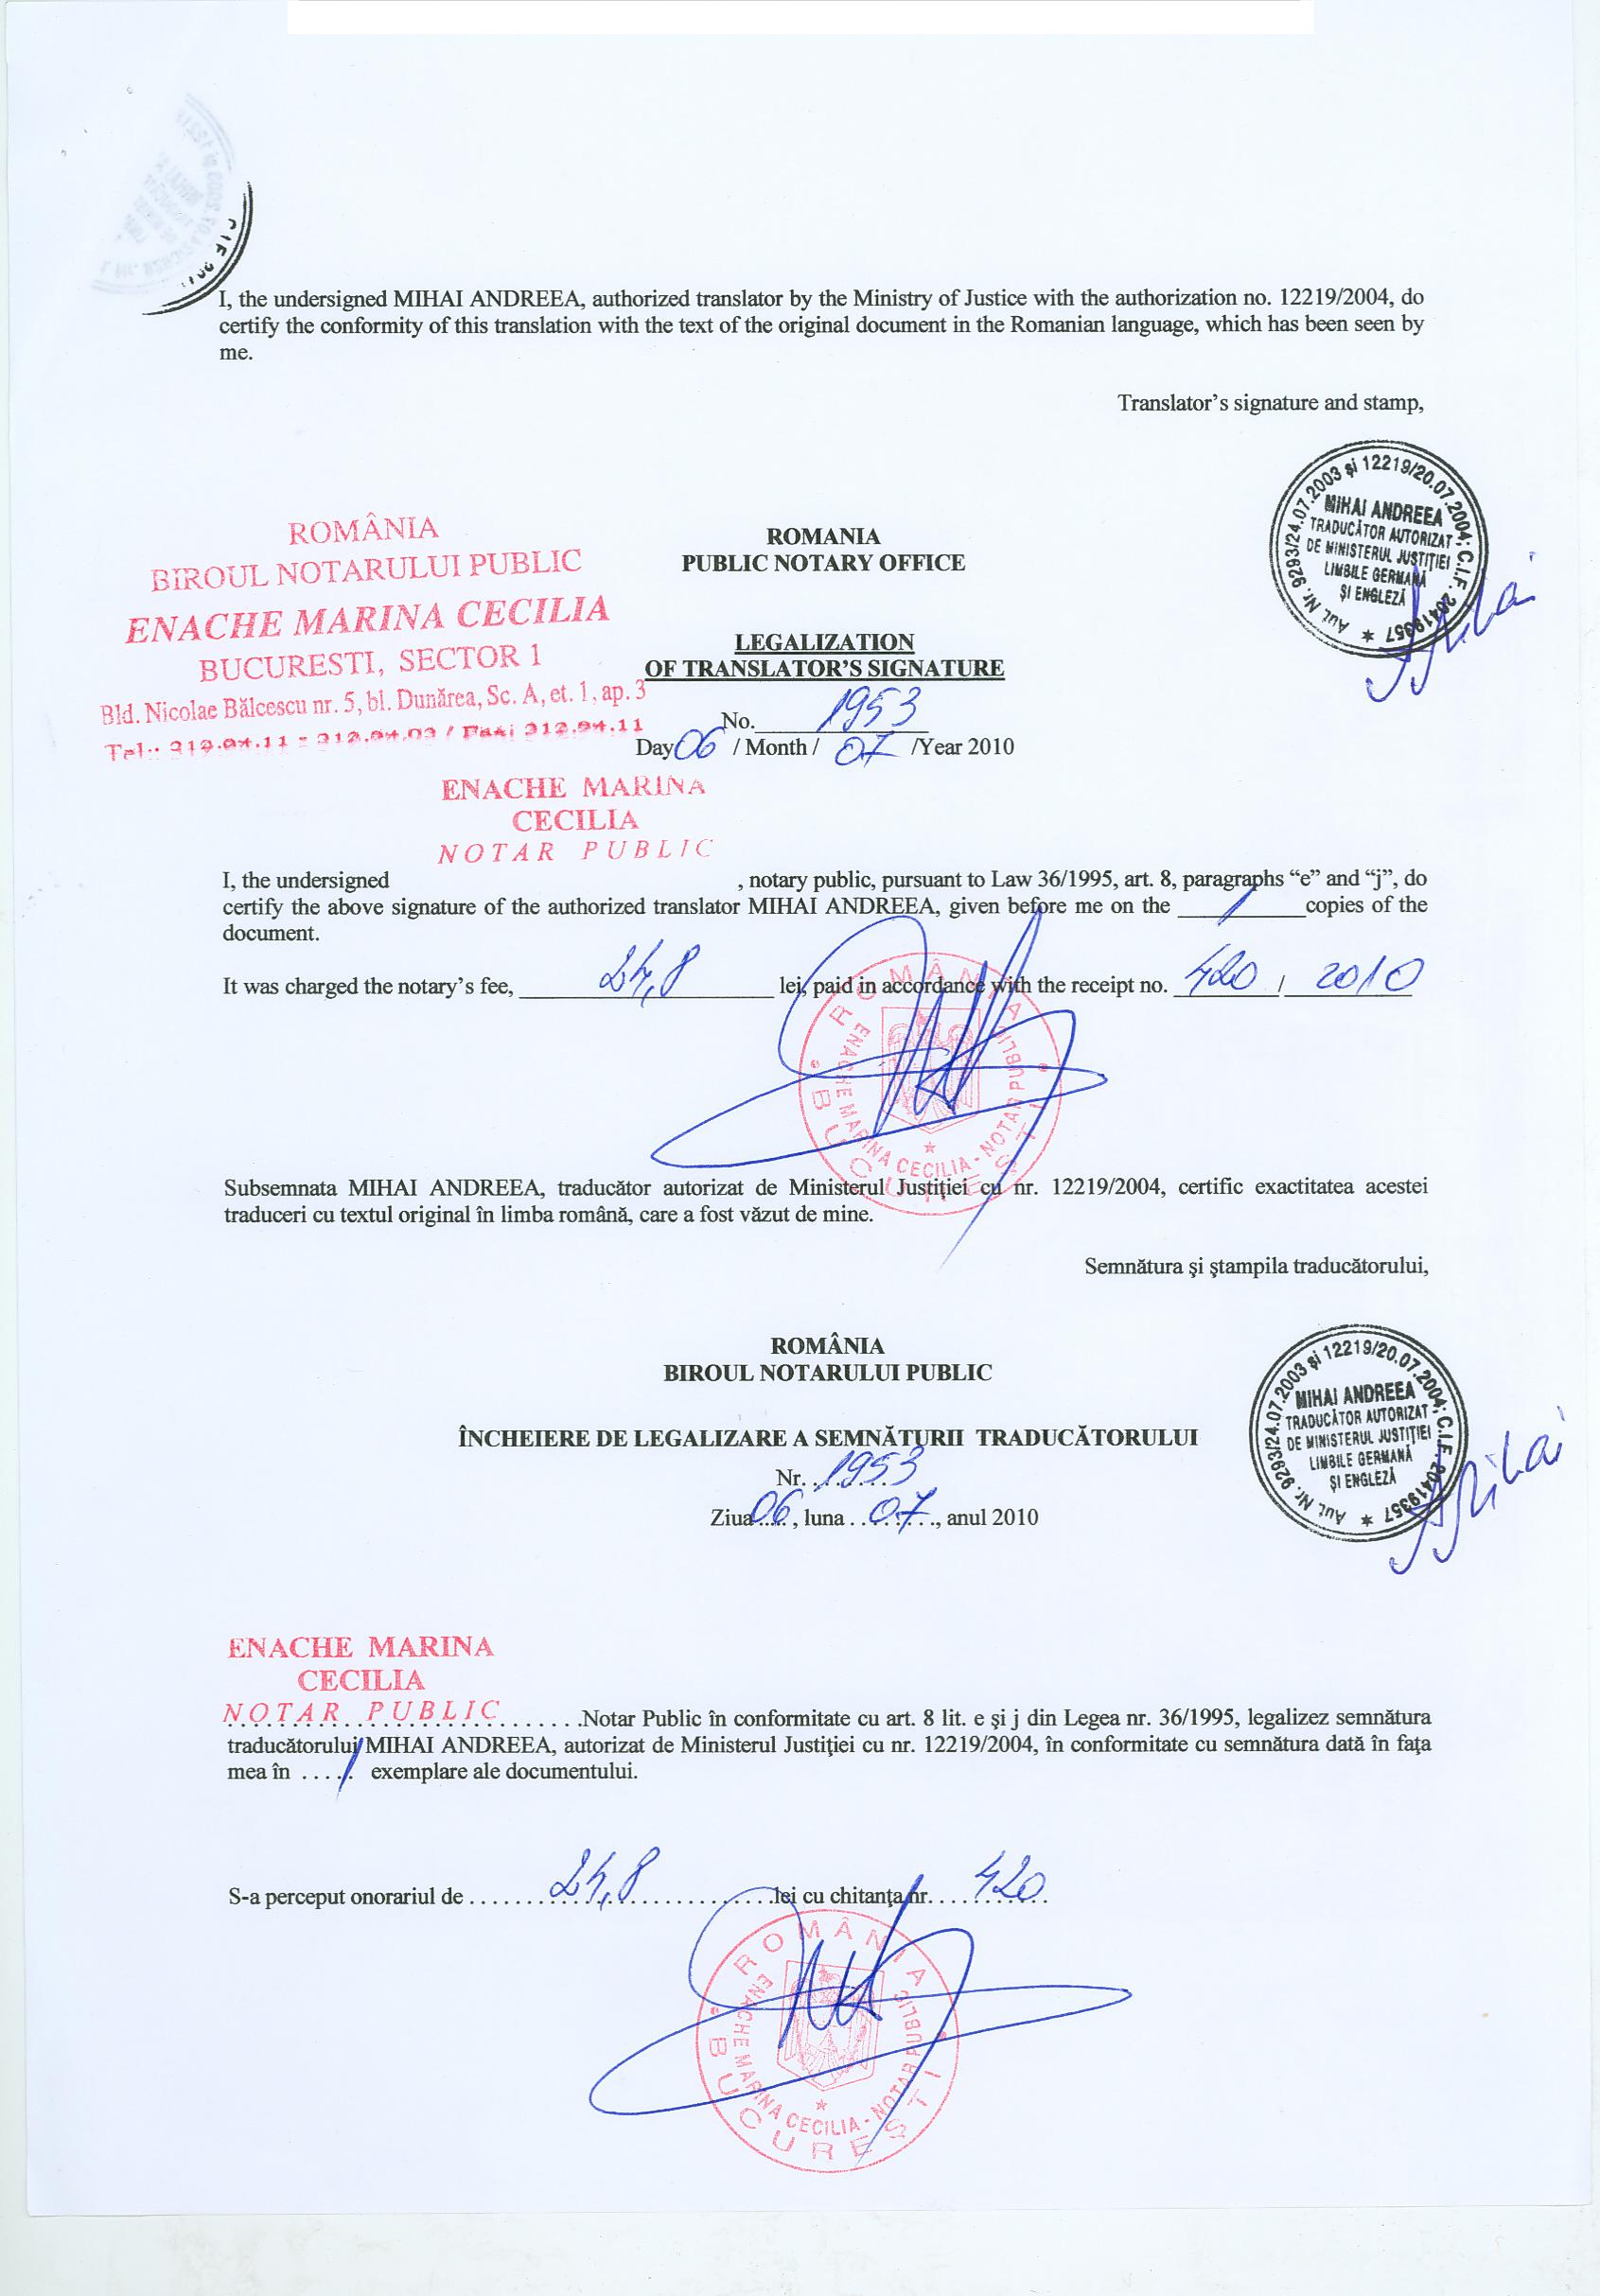 I, the undersigned MIHAI ANDREEA, authorized translator by the Ministry of Justice with the authorization no. 12219/2004, do
certify the conformity of this translation with the text of the original document in the Romanian language, which has been seen by
me.
Translator's signature and stamp,
Aut. Nr. 9293/24.07.2003 și 12219/20.07.2004; C.I.F. 20419357 *
MIHAI ANDREEA
TRADUCĂTOR AUTORIZAT
DE MINISTERUL JUSTIȚIEI
LIMBILE GERMANĂ
ȘI ENGLEZĂ
AMihai
ROMÂNIA
BIROUL NOTARULUI PUBLIC
ENACHE MARINA CECILIA
BUCURESTI, SECTOR 1
Bld. Nicolae Bălcescu nr. 5, bl. Dunărea, Sc. A, et. 1, ap. 3
ROMANIA
PUBLIC NOTARY OFFICE
LEGALIZATION
OF TRANSLATOR'S SIGNATURE
No. 1953
Day 06 / Month / 07 /Year 2010
ENACHE MARINA
CECILIA
NOTAR PUBLIC
I, the undersigned , notary public, pursuant to Law 36/1995, art. 8, paragraphs “e” and “j”, do
certify the above signature of the authorized translator MIHAI ANDREEA, given before me on the 1 copies of the
document.
It was charged the notary's fee, 24,8 lei, paid in accordance with the receipt no. 420 / 2010
ROMÂNIA
BUCUREȘTI
ENACHE MARINA CECILIA - NOTAR PUBLIC
Subsemnata MIHAI ANDREEA, traducător autorizat de Ministerul Justiţiei cu nr. 12219/2004, certific exactitatea acestei
traduceri cu textul original în limba română, care a fost văzut de mine.
Semnătura şi ştampila traducătorului,
ROMÂNIA
BIROUL NOTARULUI PUBLIC
Aut. Nr. 9293/24.07.2003 și 12219/20.07.2004; C.I.F. 20419357 *
MIHAI ANDREEA
TRADUCĂTOR AUTORIZAT
DE MINISTERUL JUSTIȚIEI
LIMBILE GERMANĂ
ȘI ENGLEZĂ
AMihai
ÎNCHEIERE DE LEGALIZARE A SEMNĂTURII TRADUCĂTORULUI
Nr. 1953
Ziua 06, luna 07, anul 2010
ENACHE MARINA
CECILIA
NOTAR PUBLIC
.Notar Public în conformitate cu art. 8 lit. e şi j din Legea nr. 36/1995, legalizez semnătura
traducătorului MIHAI ANDREEA, autorizat de Ministerul Justiţiei cu nr. 12219/2004, în conformitate cu semnătura dată în faţa
mea în 1 exemplare ale documentului.
S-a perceput onorariul de 24,8 lei cu chitanţa nr. 420
ROMÂNIA
BUCUREȘTI
ENACHE MARINA CECILIA - NOTAR PUBLIC